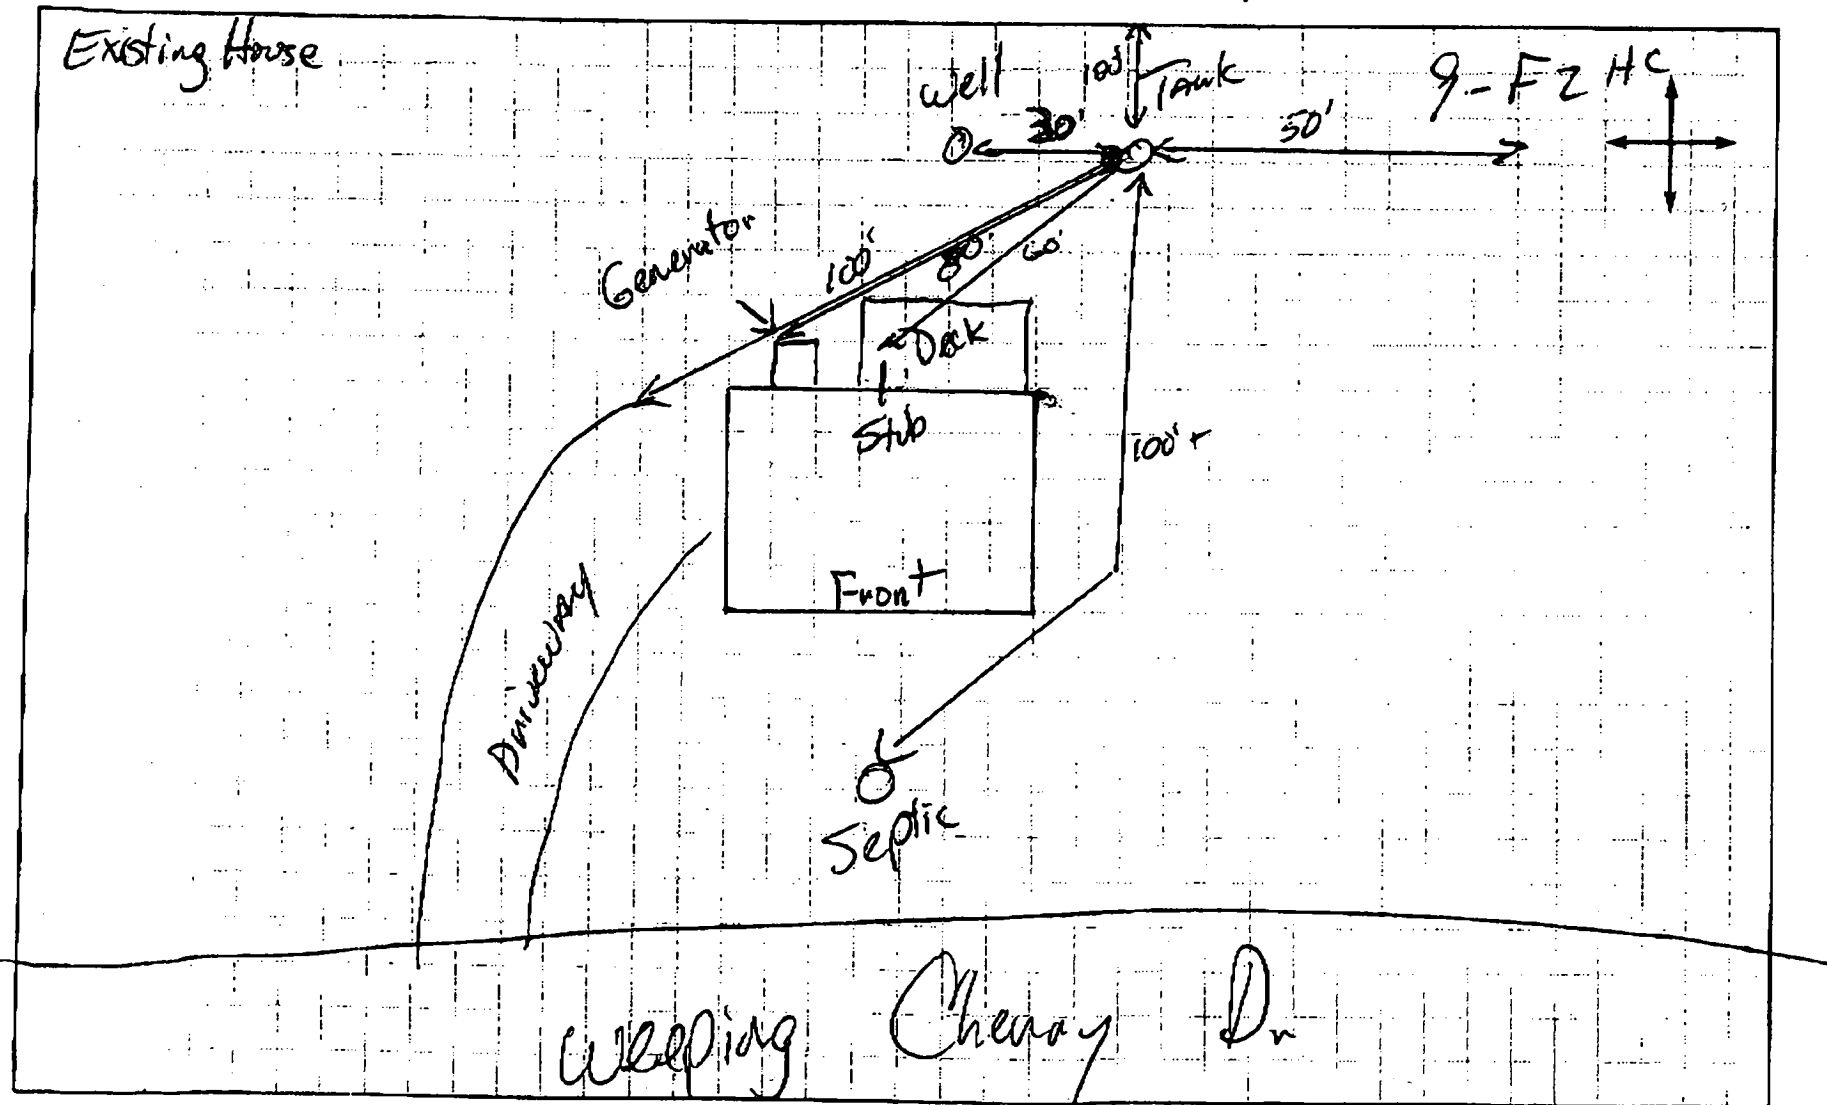 Existing House
Well
100'
Tank
9-FZ HC
30'
50'
Generator
100'
80'
60'
Deck
Stub
100'+
Front
Driveway
Septic
Weeping Cherry Dr